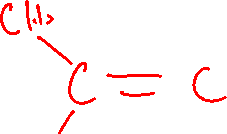 CH3
C = C